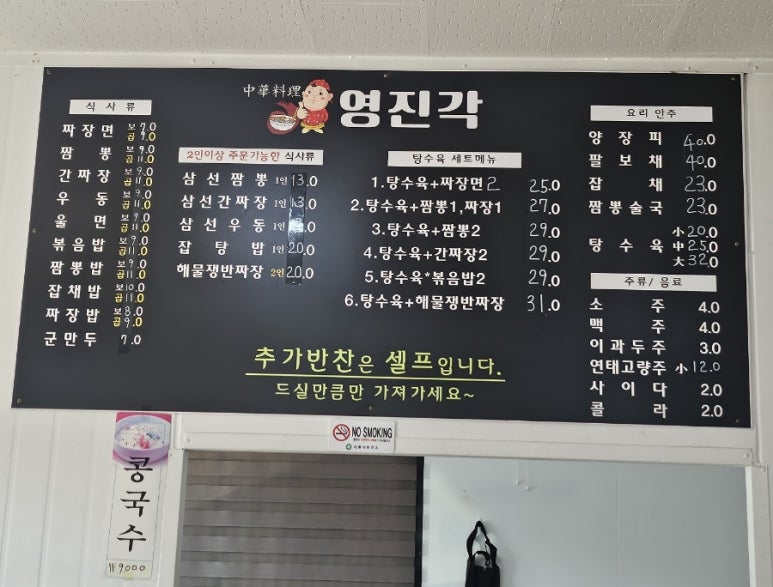 中華料理 영진각
식사류
짜장면 보 7.0 곱 9.0
짬뽕 보 9.0 곱 11.0
간짜장 보 9.0 곱 11.0
우동 보 9.0 곱 11.0
울면 보 9.0 곱 11.0
볶음밥 보 9.0 곱 11.0
짬뽕밥 보 9.0 곱 11.0
잡채밥 보 10.0 곱 11.0
짜장밥 보 8.0 곱 9.0
군만두 7.0
2인이상 주문가능한 식사류
삼선짬뽕 1인 13.0
삼선간짜장 1인 13.0
삼선우동 1인 13.0
잡탕밥 1인 20.0
해물쟁반짜장 2인 20.0
탕수육 세트메뉴
1.탕수육+짜장면2 25.0
2.탕수육+짬뽕1,짜장1 27.0
3.탕수육+짬뽕2 29.0
4.탕수육+간짜장2 29.0
5.탕수육*볶음밥2 29.0
6.탕수육+해물쟁반짜장 31.0
요리 안주
양장피 40.0
팔보채 40.0
잡채 23.0
짬뽕술국 23.0
탕수육 小 20.0
中 25.0
大 32.0
주류/ 음료
소주 4.0
맥주 4.0
이과두주 3.0
연태고량주 小 12.0
사이다 2.0
콜라 2.0
추가반찬은 셀프입니다.
드실만큼만 가져가세요~
NO SMOKING
콩국수
₩9000